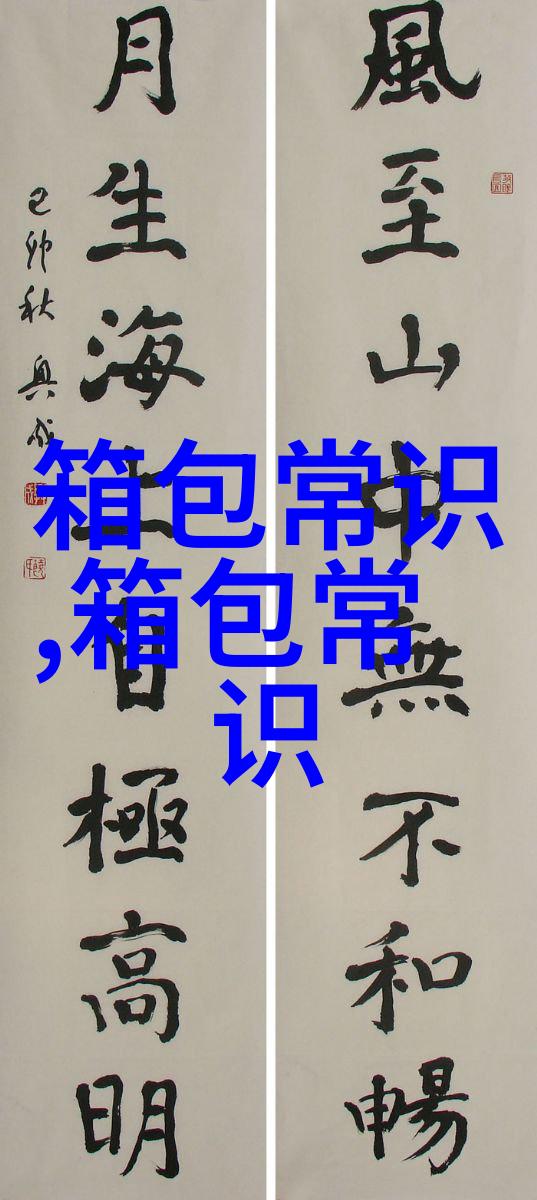 風至山中無不和暢
月生海上極高明
己卯秋
箱包常识
,箱包常
识